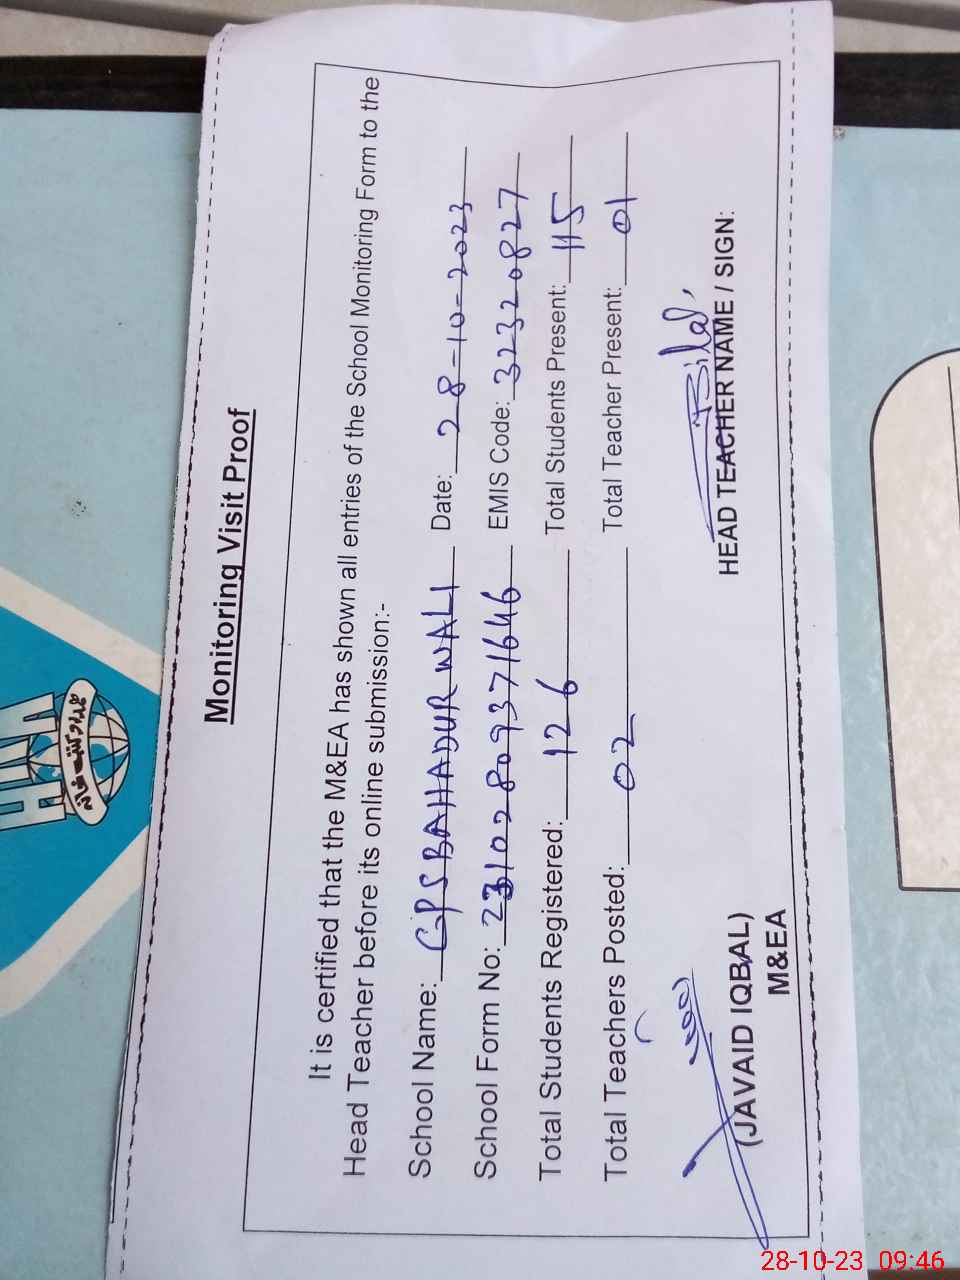 Monitoring Visit Proof
It is certified that the M&EA has shown all entries of the School Monitoring Form to the
Head Teacher before its online submission:-
School Name: GPS BAHADUR WALI Date: 28-10-2023
School Form No: 23102809371646 EMIS Code: 32320827
Total Students Registered: 126 Total Students Present: 115
Total Teachers Posted: 02 Total Teacher Present: 01
Bilal
(JAVAID IQBAL) HEAD TEACHER NAME / SIGN:
M&EA
ہمدرد کتب خانہ
28-10-23 09:46